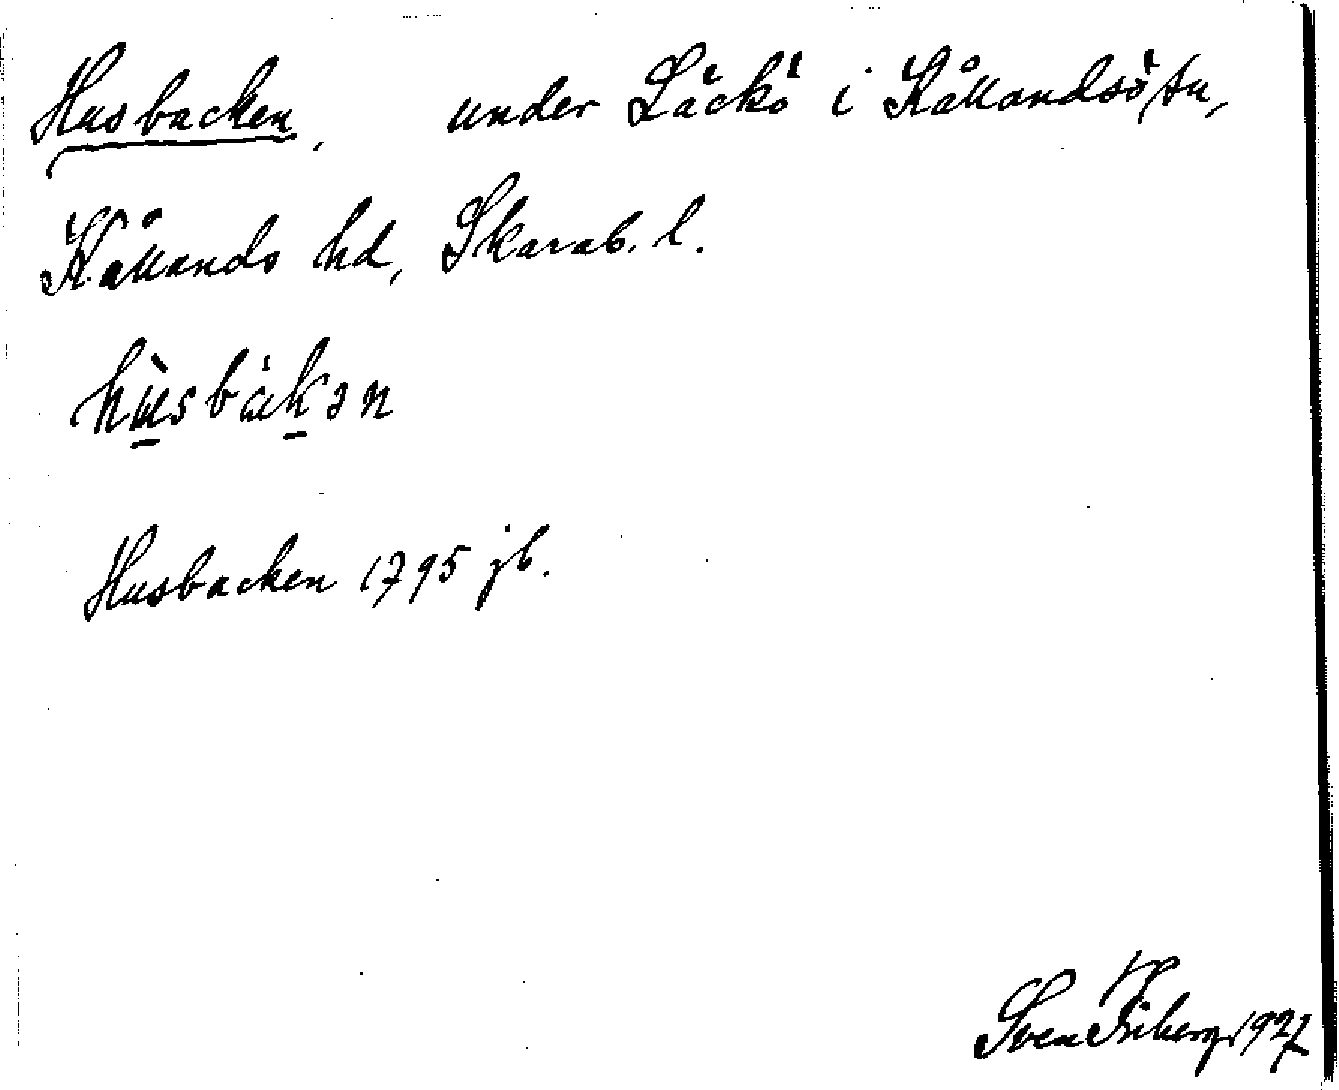 Husbacken, under Läckö i Kållandsö sn,
Kållands hd, Skarab. l.
hùsbákən
Husbacken 1795 jb.
Sven Friberg 1927